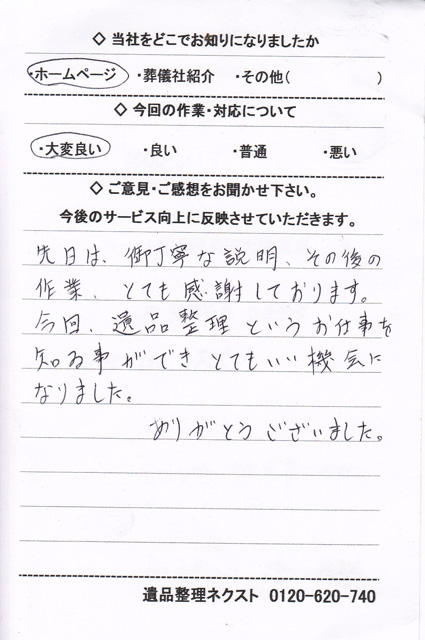 ◇ 当社をどこでお知りになりましたか
・ホームページ ・葬儀社紹介 ・その他( )
◇ 今回の作業・対応について
・大変良い ・良い ・普通 ・悪い
◇ ご意見・ご感想をお聞かせ下さい。
今後のサービス向上に反映させていただきます。
先日は、御丁寧な説明、その後の
作業、とても感謝しております。
今回、遺品整理というお仕事を
知る事ができとてもいい機会に
なりました。
ありがとうございました。
遺品整理ネクスト 0120-620-740